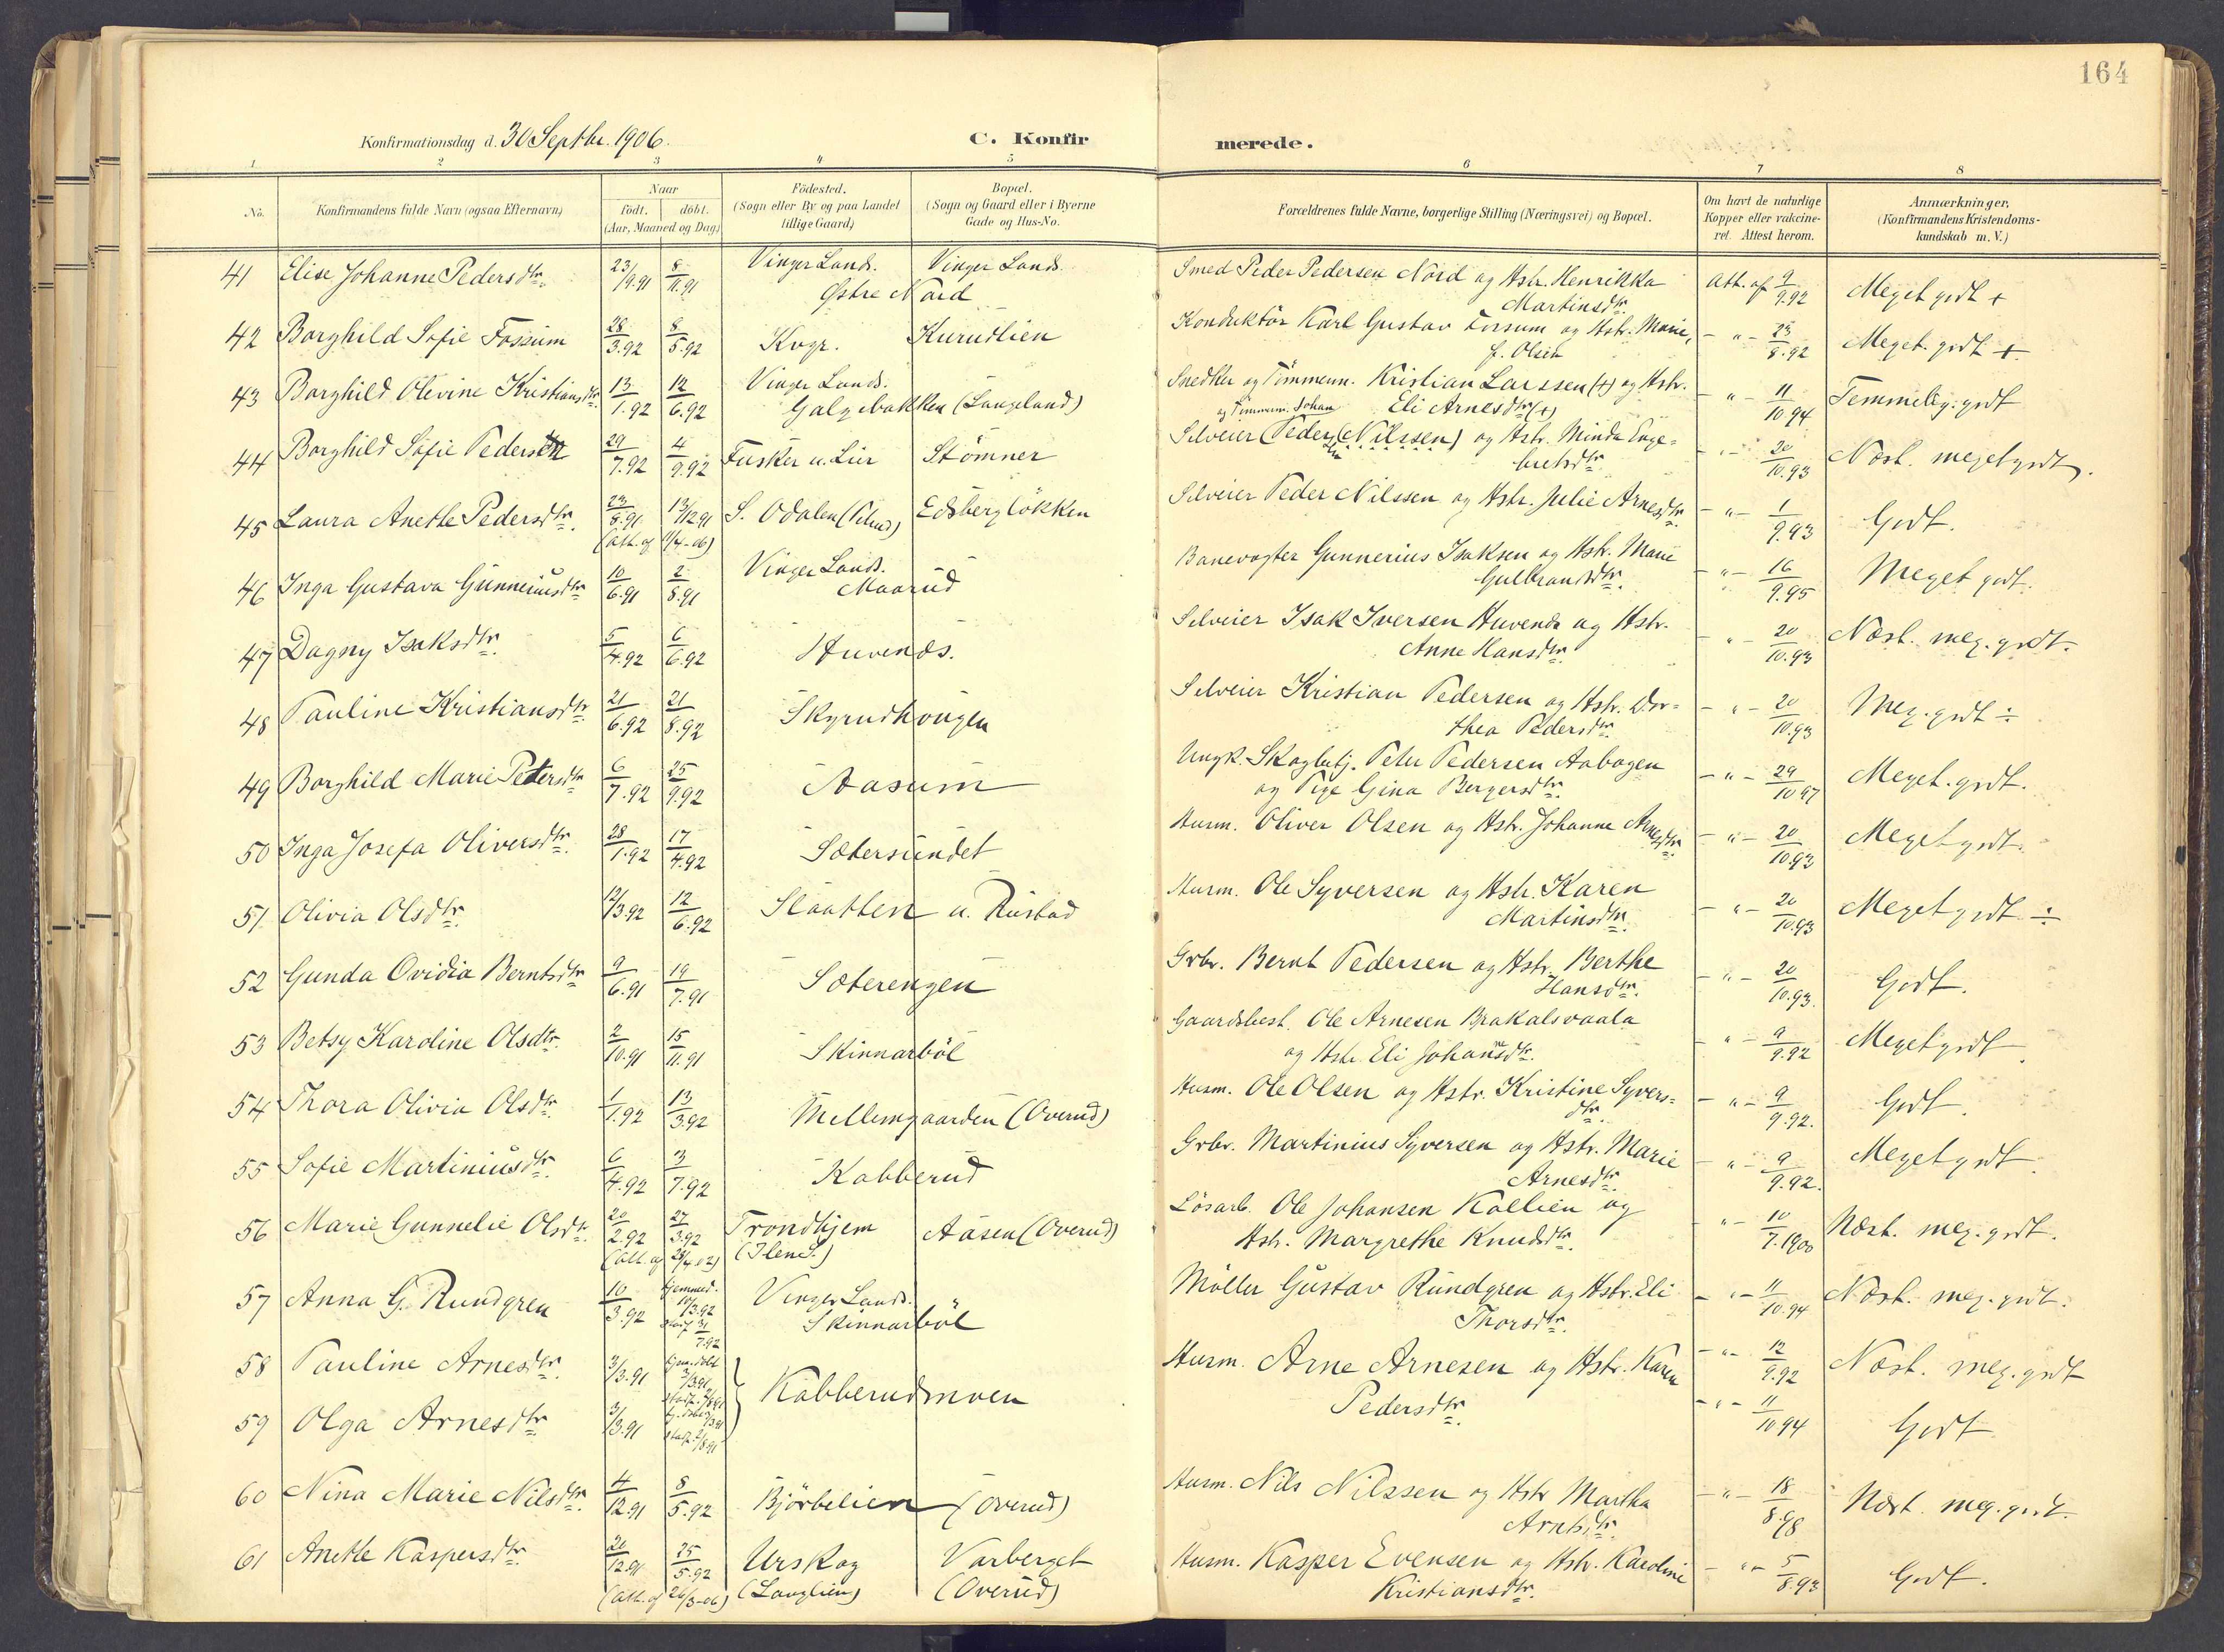 164
Konfirmationsdag d. 30 Septbr. 1906.
C. Konfir
merede.
1 2 3 4 5 6 7 8
No.
Konfirmandens fulde Navn (ogsaa Efternavn)
Naar
födt. döbt.
(Aar, Maaned og Dag)
Födested.
(Sogn eller By og paa Landet
tillige Gaard)
Bopæl.
(Sogn og Gaard eller i Byerne
Gade og Hus-No.
Forældrenes fulde Navne, borgerlige Stilling (Næringsvei) og Bopæl.
Om havt de naturlige
Kopper eller vakcine-
ret. Attest herom.
Anmærkninger.
(Konfirmandens Kristendoms-
kundskab m. V.)
41 Elise Johanne Pedersdtr. 23/9.91 8/11.91 Vinger Lands. Vinger Lands. Smed Peder Pedersen Nord og Hstr. Henrikka Att. af 9/9.92 Meget godt +
Østre Nord Martinsdtr.
42 Borghild Sofie Fossum 28/3.92 8/5.92 Kvgr. Kurudlien Konduktör Karl Gustav Fossum og Hstr. Marie, - " - 23/8.92 Meget. godt +
f. Olsen
43 Borghild Olevine Kristiansdtr. 13/1.92 12/6.92 Vinger Lands. Snedker og Tömmerm. Kristian Larssen (+) og Hstr. - " - 11/10.94 Temmelig godt
Galgebakken (Langeland) Eli Arnesdtr (+)
og Tömmerm. Johan
44 Borghild Sofie Pedersen 29/7.92 4/9.92 Fusker u. Lier Stömner Selveier (Peder Nilssen) og Hstr. Minda Enge= - " - 20/10.93 Næst. meget godt.
bretsdtr.
45 Laura Anette Pedersdtr. 23/8.91 13/12.91 S. Odalen Edsberglökken Selveier Peder Nilssen og Hstr. Julie Arnesdtr. - " - 1/9.93 Godt.
(Att. af 11/4-06)
46 Inga Gustava Gunneriusdtr 10/6.91 2/8.91 Vinger Lands. Banevogter Gunnerius Isaksen og Hstr. Marie - " - 16/9.95 Meget godt.
Maarud Gulbrandsdtr.
47 Dagny Isaksdtr. 5/4.92 6/6.92 Huvenæs. Selveier Isak Iversen Huvenæs og Hstr. - " - 20/10.93 Næst. meg. godt.
Anne Hansdtr.
48 Pauline Kristiansdtr 21/6.92 21/8.92 Skyrudhougen Selveier Kristian Pedersen og Hstr. Dor= - " - 20/10.93 Meg. godt ÷
thea Pedersdtr.
49 Borghild Marie Petersdtr 6/7.92 25/9.92 Aasum Ungk. Skogbetj. Peter Pedersen Aabogen - " - 29/10 97 Meget. godt.
og Pige Gina Bergersdtr.
50 Inga Josefa Oliversdtr. 28/1.92 17/4.92 Sætersundet Husm. Oliver Olsen og Hstr. Johanne Arnesdtr. - " - 20/10.93 Meget godt.
51 Olivia Olsdtr. 12/3.92 12/6.92 Slaatten u. Rustad Husm. Ole Syversen og Hstr. Karen - " - 20/10.93 Meget godt ÷
Martinsdtr.
52 Gunda Ovidia Berntsdtr 9/6.91 19/7.91 Sæterengen Grbr. Bernt Pedersen og Hstr. Berthe - " - 20/10.93. Godt.
Hansdtr.
53 Betsy Karoline Olsdtr. 2/10.91 15/11.91 Skinnarböl Gaardsbest. Ole Arnesen Brakalsvaala - " - 9/9.92 Meget godt.
og Hstr. Eli Johansdtr.
54 Thora Olivia Olsdtr. 1/1.92 13/3.92 Mellemgaarden (Overud) Husm. Ole Olsen og Hstr. Kristine Syvers= - " - 9/9.92. Godt.
dtr.
55 Sofie Martiniusdtr. 6/4.92 3/7.92 Kabberud Grbr. Martinius Syversen og Hstr. Marie - " - 9/9.92. Meget godt.
Arnesdtr.
56 Marie Gunnelie Olsdtr 20/2.92 27/3.92 Trondhjem Aasen (Overud) Lösarb. Ole Johansen Kollien og - " - 10/7.1900 Næst. meg. godt.
(Att. af 24/4.02) (Ilen S.) Hstr. Margrethe Knudsdtr.
57 Anna G. Rundgren 10/3.92 hjemmed. 10/3.92 stadf. 31/7.92 Vinger Lands. " Möller Gustav Rundgren og Hstr. Eli - " - 11/10.94 Næst. meg. godt.
Skinnarböl Thorsdtr.
58 Pauline Arnesdtr. 3/3.91 hjem. döbt 3/3.91 Kabberudmoen Husm. Arne Arnesen og Hstr. Karen - " - 12/9.92 Næst. meg. godt
59 Olga Arnesdtr. 3/3.91 Pedersdtr. - " - 11/10 94 Godt
60 Nina Marie Nilsdtr. 4/12.91 8/5.92 Björbelien (Overud) Husm. Nils Nilssen og Hstr Martha - " - 18/8.98 Næst. meg. godt.
Arntsdtr.
61 Anette Kaspersdtr. 20/12.91 25/5.92 Urskog Varberget Husm. Kasper Evensen og Hstr. Karoline - " - 5/8.93 Godt.
(Att. af 26/3-06) (Langlien) (Overud) Kristiansdtr.